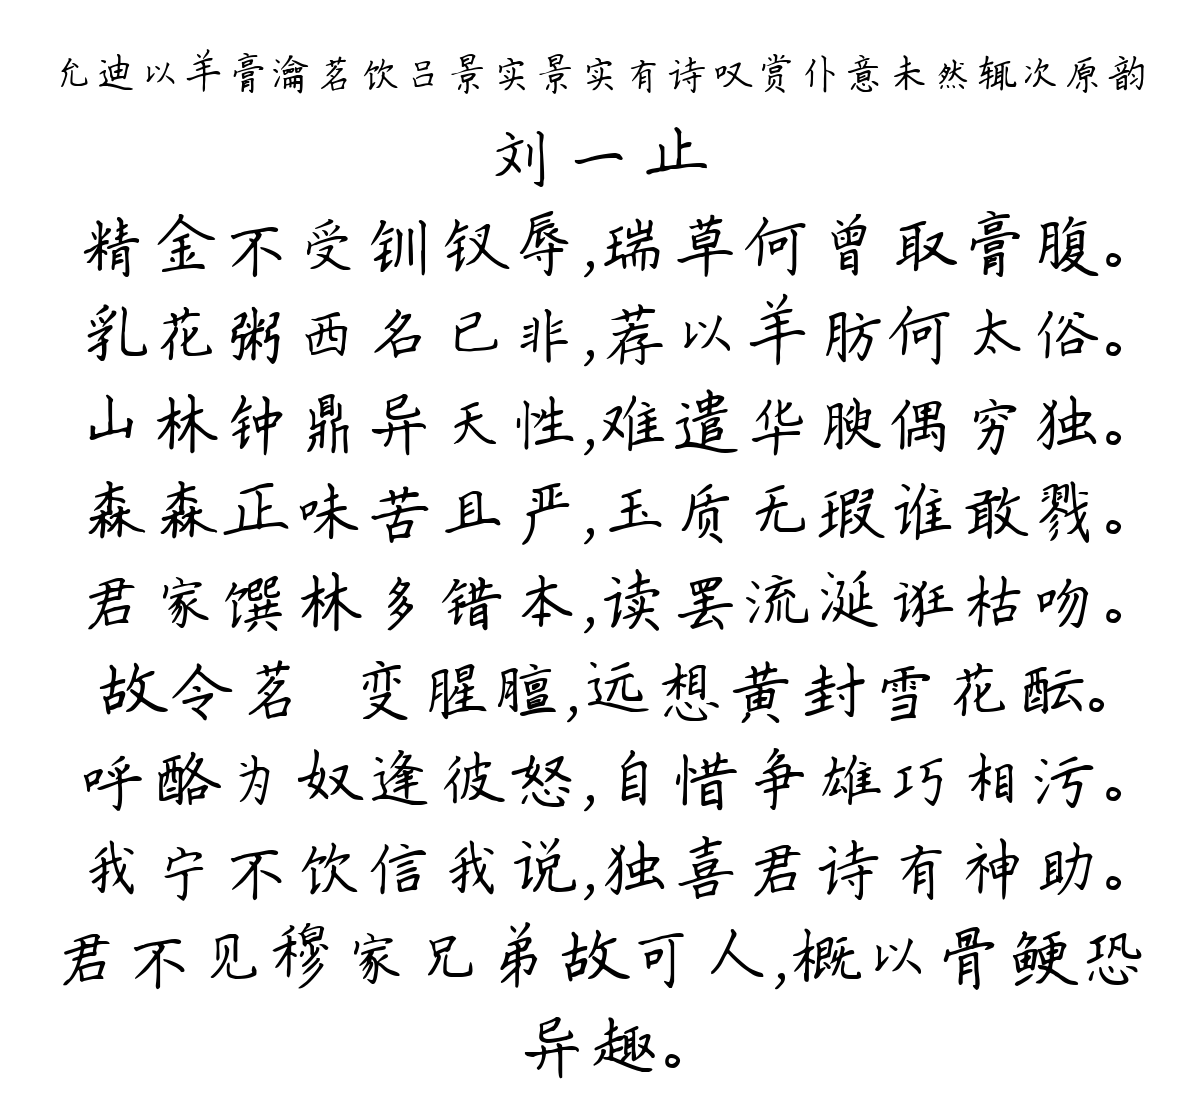 允迪以羊膏瀹茗饮吕景实景实有诗叹赏仆意未然辄次原韵
刘一止
精金不受钏钗辱,瑞草何曾取膏腹。
乳花粥西名已非,荐以羊肪何太俗。
山林钟鼎异天性,难遣华腴偶穷独。
森森正味苦且严,玉质无瑕谁敢戮。
君家馔林多错本,读罢流涎诳枯吻。
故令茗 变腥膻,远想黄封雪花酝。
呼酪为奴逢彼怒,自惜争雄巧相污。
我宁不饮信我说,独喜君诗有神助。
君不见穆家兄弟故可人,概以骨鲠恐
异趣。